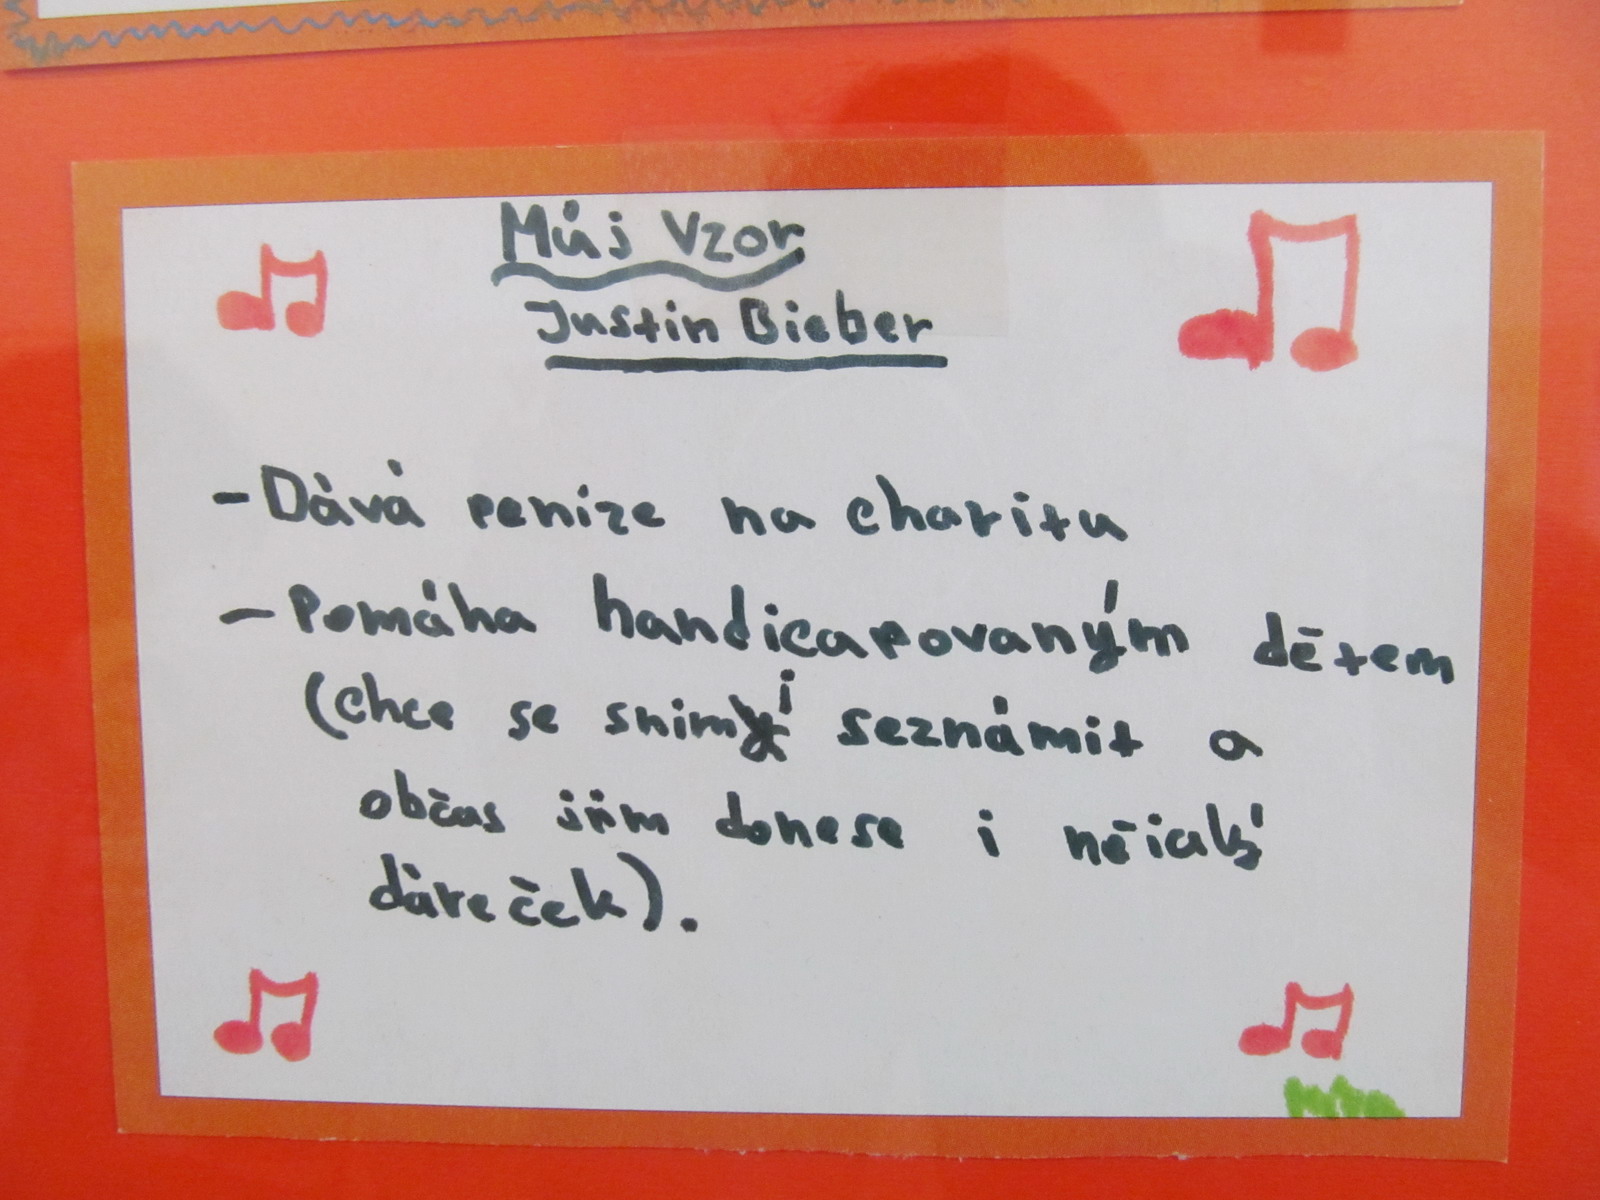 Můj Vzor
Justin Bieber
- Dává peníze na charitu
- Pomáha handicapovaným dětem
(chce se snimi seznámit a
občas jim donese i nějaký
dáreček).